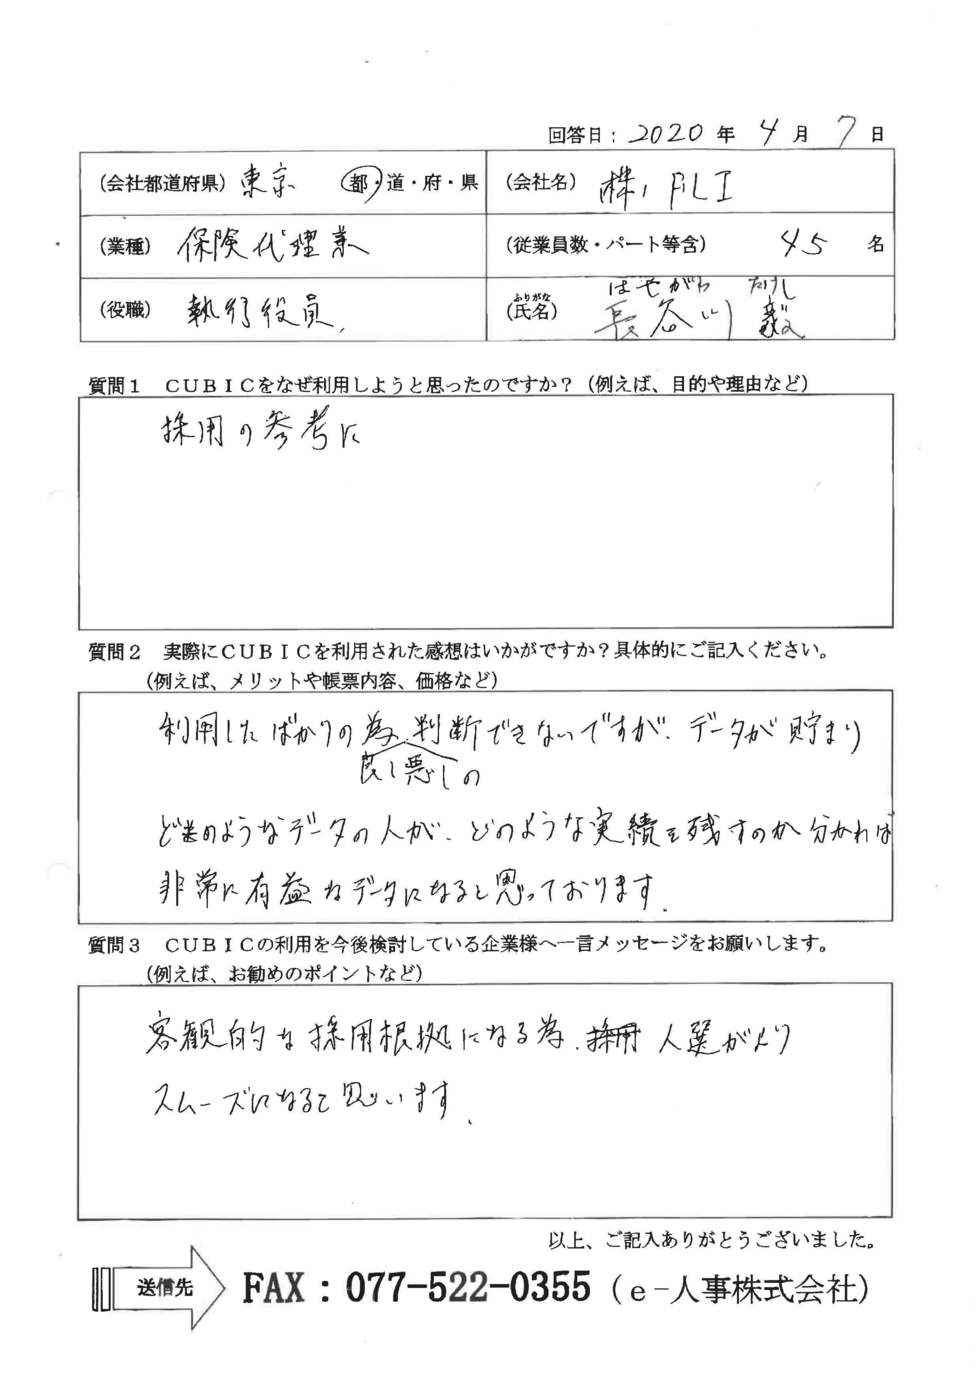 回答日：2020年 4月 7日
(会社都道府県) 東京 都・道・府・県 (会社名) 株) FLI
(業種) 保険代理業 (従業員数・パート等含) 45 名
はせがわ たけし
(役職) 執行役員 (氏名) ふりがな 長谷川 毅
質問１ ＣＵＢＩＣをなぜ利用しようと思ったのですか？（例えば、目的や理由など）
採用の参考に
質問２ 実際にＣＵＢＩＣを利用された感想はいかがですか？具体的にご記入ください。
（例えば、メリットや帳票内容、価格など）
利用したばかりの為、判断できないですが、データが貯まり
良し悪しの
どのようなデータの人が、どのような実績を残すのか分かれば
非常に有益なデータになると思っております。
質問３ ＣＵＢＩＣの利用を今後検討している企業様へ一言メッセージをお願いします。
（例えば、お勧めのポイントなど）
客観的な採用根拠になる為、採用 人選がより
スムーズになると思います。
以上、ご記入ありがとうございました。
送信先 FAX：077-522-0355（ｅ-人事株式会社）